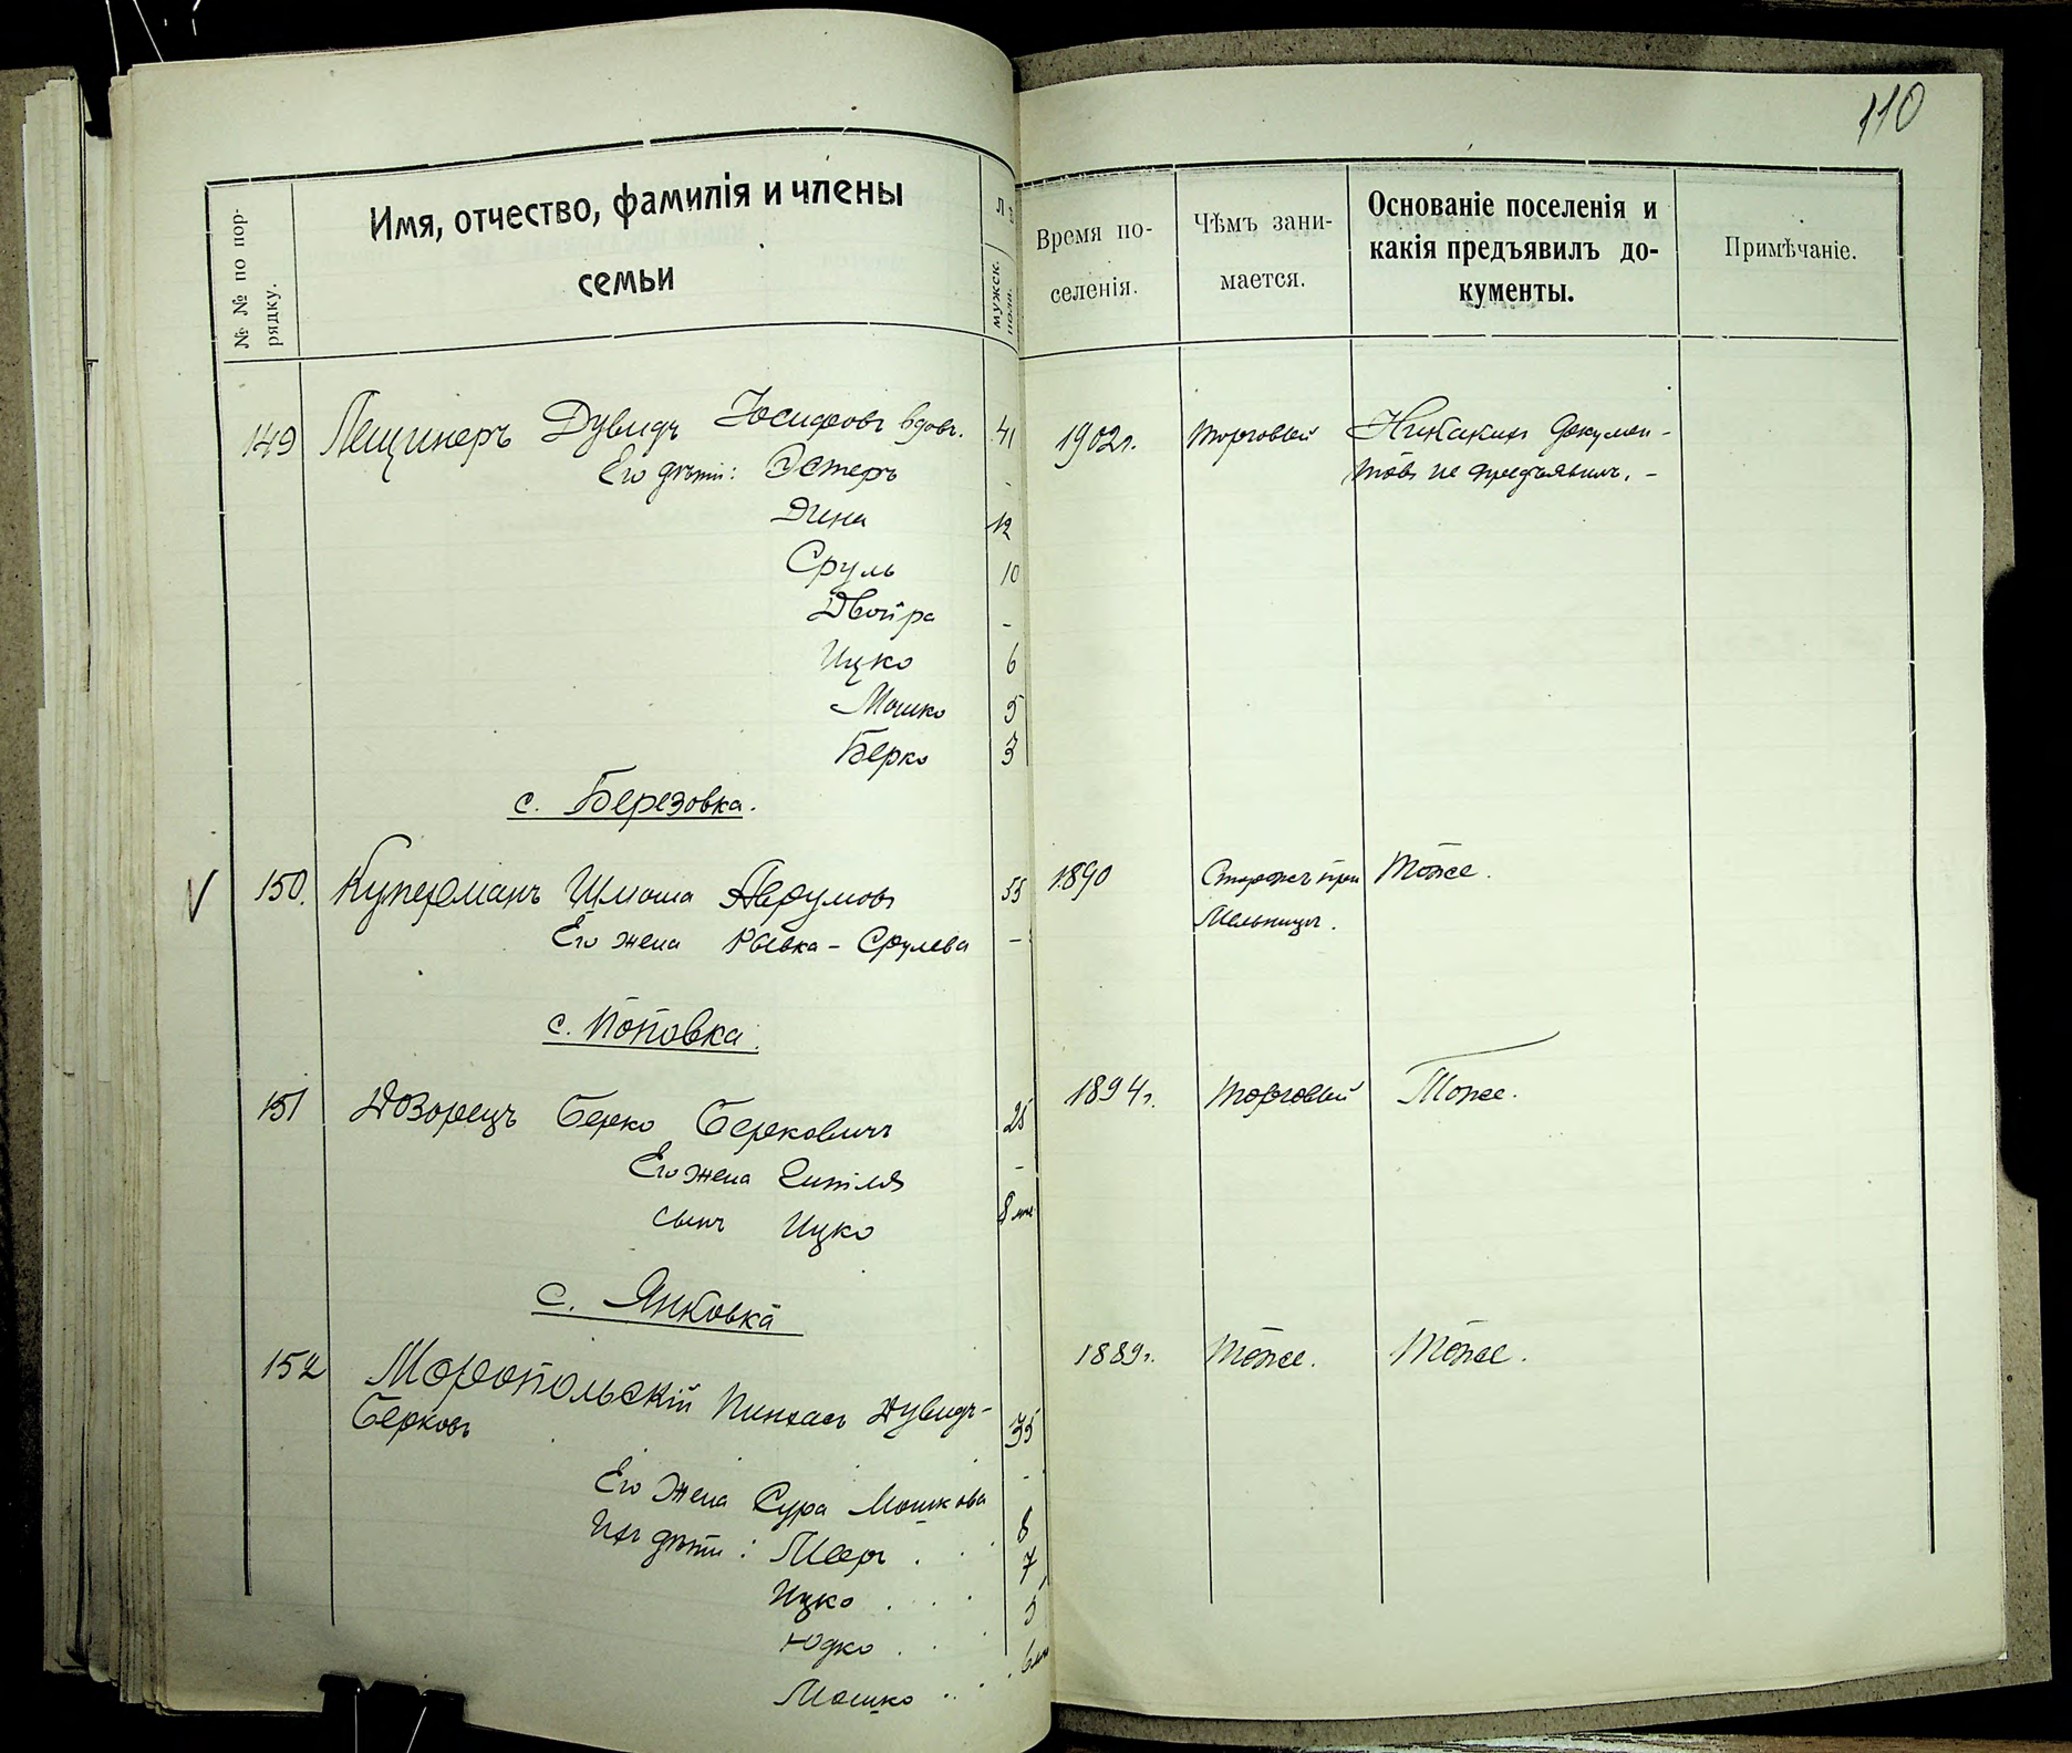 110
№ № по пор-
рядку.
Имя, отчество, фамилія и члены
семьи
мужск.
пола.
Время по-
селенія.
Чѣмъ зани-
мается.
Основаніе поселенія и
какія предъявилъ до-
кументы.
Примѣчаніе.
149 Лещинеръ Дувидъ Іосифовъ вдов. 41 1902г. торговый Никакихъ докумен-
Его дѣти: Эстеръ - товъ не предъявилъ. -
Дина 12
Сруль 10
Двойра -
Ицко 6
Мошко 5
Берко 3
с. Березовка.
V 150. Куперманъ Шмоша Аврумовъ 55 1890 Сторожъ при Тоже.
Его жена Рывка - Срулева - Мельницѣ.
с. Поповка.
151 Дозорецъ Берко Берковичъ 25 1894г. торговый Тоже.
Его жена -
сынъ Ицко 8 мѣс
с. Янковка
152 Моропольскій Пинхасъ Дувидъ- 35 1889г. Тоже. Тоже.
Берковъ
Его жена Сура Мошкова -
Ихъ дѣти: Меер . . . 8
Ицко . . . 7
Юдко . . . 5
Мошко . . . 6 мѣс